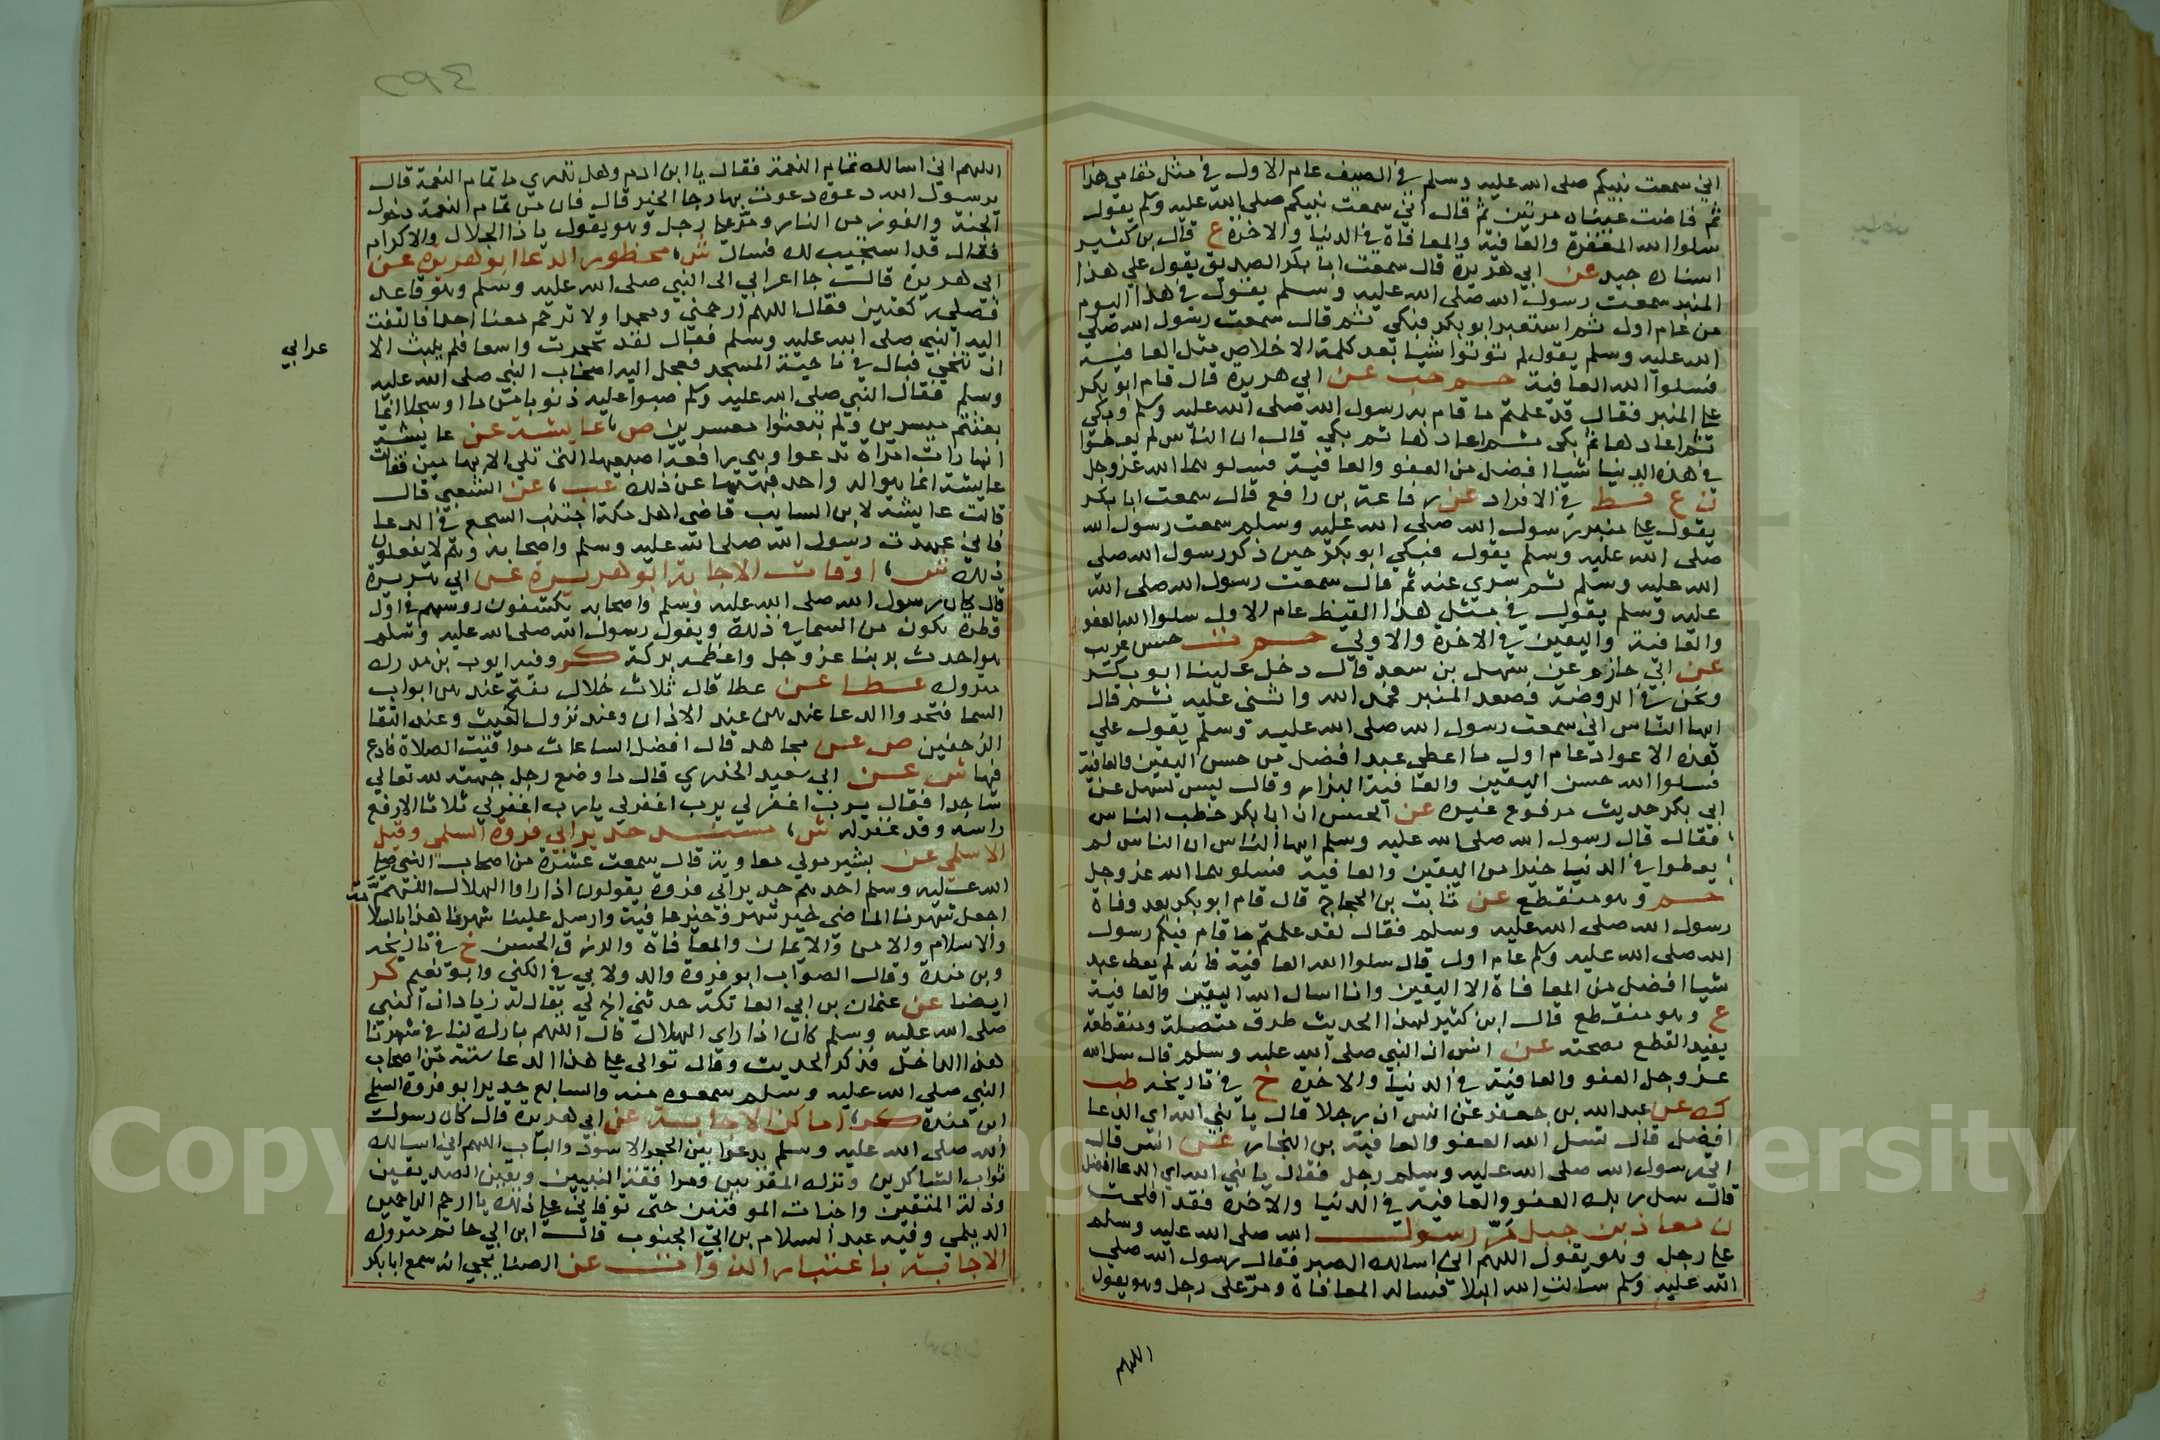 اني سمعت نبيكم صلى الله عليه وسلم في الصيف عام الاول في مثل مقامي هذا
ثم فاضت عيناه مرتين ثم قال اني سمعت نبيكم صلى الله عليه وسلم يقول
سلوا الله المغفرة والعافية والمعافاة في الدنيا والاخرة ع قال بن كثير
اسناده جيد عن ابي هريرة قال سمعت ابا بكر الصديق يقول علي هذا
المنبر سمعت رسول الله صلى الله عليه وسلم يقول في هذا اليوم
من عام اول ثم استعبر ابو بكر فبكي ثم قال سمعت رسول الله صلى
الله عليه وسلم يقول لم توتوا شيا بعد كلمة الاخلاص مثل العافية
فسلوا الله العافية حم حب عن ابي هريرة قال قام ابو بكر
علي المنبر فقال قد علمتم ما قام به رسول الله صلى الله عليه وسلم وبكي
ثم اعادها ثم بكي ثم اعادها ثم بكي قال ان الناس لم يعطوا
في هذه الدنيا شيا افضل من العفو والعافية فسلوهما الله عز وجل
ن ع قط في الافراد عن رفاعة بن رافع قال سمعت ابا بكر
يقول علي منبر رسول الله صلى الله عليه وسلم سمعت رسول الله
صلى الله عليه وسلم يقول فبكي ابو بكر حين ذكر رسول الله صلى
الله عليه وسلم ثم سري عنه ثم قال سمعت رسول الله صلى الله
عليه وسلم يقول في مثل هذا القيظ عام الاول سلوا الله العفو
والعافية واليقين في الاخرة والاولي حم ت حسن غريب
عن ابي حازم عن سهل بن سعد قال دخل علينا ابو بكر
ونحن في الروضة فصعد المنبر فحمد الله واثنى عليه ثم قال
ايها الناس اني سمعت رسول الله صلى الله عليه وسلم يقول علي
هذه الاعواد عام اول ما اعطي عبد افضل من حسن اليقين والعافية
فسلوا الله حسن اليقين والعافية البزار وقال ليس لسهل عن
ابي بكر حديث مرفوع غيره عن الحسن ان ابا بكر خطب الناس
فقال قال رسول الله صلى الله عليه وسلم ايها الناس ان الناس لم
يعطوا في الدنيا خيرا من اليقين والعافية فسلوهما الله عز وجل
حم وهو منقطع عن ثابت بن الحجاج قال قام ابو بكر بعد وفاة
رسول الله صلى الله عليه وسلم فقال لقد علمتم ما قام فيكم رسول
الله صلى الله عليه وسلم عام اول قال سلوا الله العافية فانه لم يعط عبد
شيا افضل من المعافاة الا اليقين وانا اسال الله اليقين والعافية
ع وهو منقطع قال ابن كثير لهذا الحديث طرق متصلة ومنقطعة
يفيد القطع بصحته عن انس ان النبي صلى الله عليه وسلم قال سل الله
عز وجل العفو والعافية في الدنيا والاخرة خ في تاريخه طب
ك عن عبد الله بن جعفر عن انس ان رجلا قال يا نبي الله اي الدعا
افضل قال تسل الله العفو والعافية بن النجار عن انس قال
اتي رسول الله صلى الله عليه وسلم رجل فقال يا نبي الله اي الدعا افضل
قال سل ربك العفو والعافية في الدنيا والاخرة فقد افلحت
ن معاذ بن جبل مر رسول الله صلى الله عليه وسلم
علي رجل وهو يقول اللهم اني اسالك الصبر فقال رسول الله صلى
الله عليه وسلم سالت الله البلا فساله المعافاة ومر على رجل وهو يقول
اللهم
اللهم اني اسالك تمام النعمة فقال يا ابن ادم وهل تدري ما تمام النعمة قال
يرسول الله دعوة دعوت بها رجا الخير قال فان من تمام النعمة دخول
الجنة والفوز من النار ومر علي رجل وهو يقول يا ذا الجلال والاكرام
فقال قد استجيب لك فسال ش، محظور الدعا ابو هريرة عن
ابي هريرة قال جا اعرابي الى النبي صلى الله عليه وسلم وهو قاعد
فصلى ركعتين فقال اللهم ارحمني ومحمدا ولا ترحم معنا احدا فالتفت
اليه النبي صلى الله عليه وسلم فقال لقد تحجرت واسعا فلم يلبث الا
عرابي
ان تنحي فبال في ناحية المسجد فعجل اليه اصحاب النبي صلى الله عليه
وسلم فقال النبي صلى الله عليه وسلم صبوا عليه ذنوبا من ما او سجلا انما
بعثتم ميسرين ولم تبعثوا معسرين ص، عايشة عن عايشة
انها رات امراة تدعوا وهي رافعة اصبعها التي تلي الابهامين فقالت
عايشة انما هو اله واحد فنهتها عن ذلك عب، عن الشعبي قال
قالت عايشة لابن السايب قاضي اهل مكة اجتنب السجع في الدعا
فاني عهدت رسول الله صلى الله عليه وسلم واصحابه وهم لا يفعلون
ذلك ش، اوقات الاجابة ابو هريرة عن ابي هريرة
قال كان رسول الله صلى الله عليه وسلم واصحابه يكشفون روسهم في اول
قطرة تكون من السما في ذلك ويقول رسول الله صلى الله عليه وسلم
هو احدث بربنا عز وجل واعظمه بركة كر وفيه ايوب بن مدرك
متروك عطا عن عطا قال ثلاث خلال تفتح عندهن ابواب
السما فتحروا الدعا عندهن عند الاذان وعند نزول الغيث وعند التقا
الزحفين ص عن مجاهد قال افضل الساعات مواقيت الصلاة فادع
فيها ش عن ابي سعيد الخدري قال ما وضع رجل جبهته لله تعالي
ساجدا فقال يرب اغفر لي يرب اغفر لي يا رب اغفر لي ثلاثا الا رفع
راسه وقد غفر له ش، مسند حدير ابي فروة السلمي وقيل
الاسلمي عن بشير مولي معاوية قال سمعت عشرة من اصحاب النبي صلى
الله عليه وسلم احدهم حدير ابي فروة يقولون اذا راوا الهلال اللهم
اجعل شهرنا الماضي خير شهر وخير عافية وارسل علينا شهرنا هذا بالسلامة
والاسلام والامن والايمان والمعافاة والرزق الحسن خ في تاريخه
وبن مندة وقال الصواب ابو فروة والدولابي في الكنى وابو نعيم كر
ايضا عن عثمان بن ابي العاتكة حدثني اخ لي يقال له زياد ان النبي
صلى الله عليه وسلم كان اذا راى الهلال قال اللهم بارك لنا في شهرنا
هذا الداخل فذكر الحديث وقال توالي علي هذا الدعا ستة من اصحاب
النبي صلى الله عليه وسلم سمعوه منه والسابع حدير ابو فروة السلمي
ابن مندة كر، اماكن الاجابة عن ابي هريرة قال كان رسول
الله صلى الله عليه وسلم يدعوا بين الحجر الاسود والباب اللهم اني اسالك
ثواب الشاكرين ونزل المقربين ومرافقة النبيين ويقين الصديقين
وذلة المتقين واخبات الموقنين حتى توفاني علي ذلك يا ارحم الراحمين
الديلمي وفيه عبد السلام بن ابي الجنوب قال ابن ابي حاتم متروك
الاجابة باعتبار الذوات عن الصنابحي انه سمع ابا بكر
Copyright © King Saud University